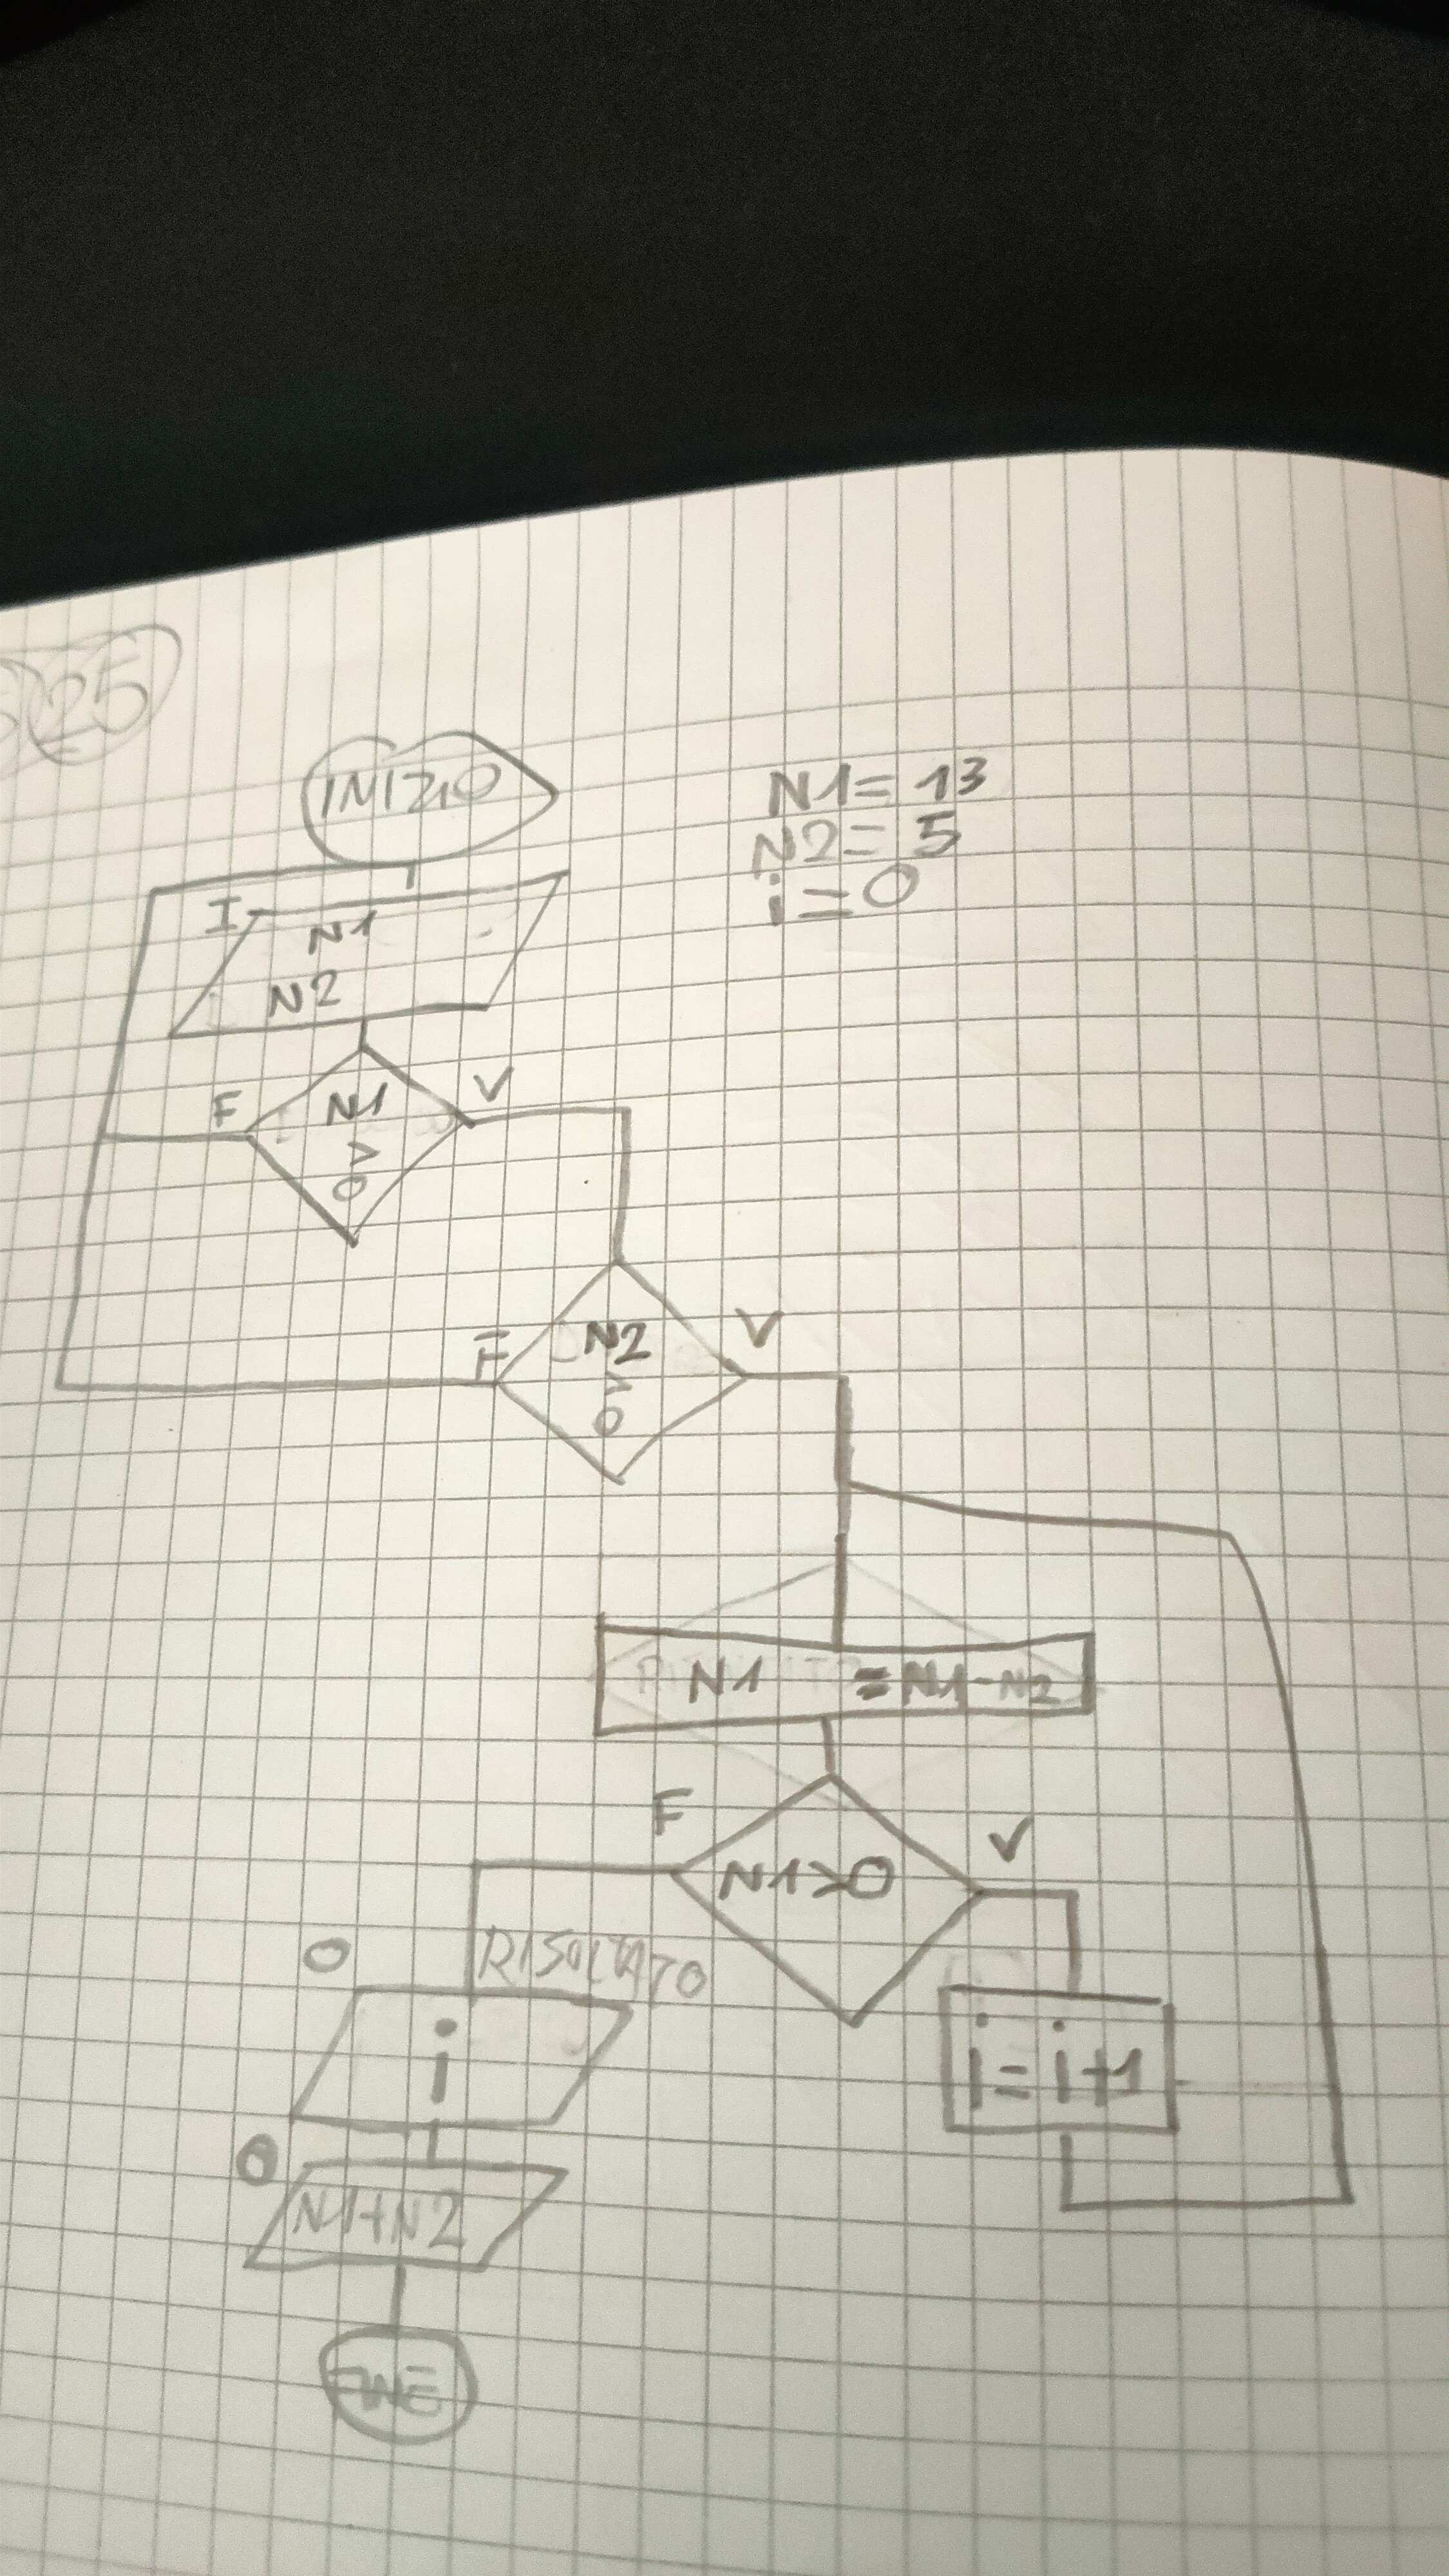 25
INIZIO
N1= 13
N2= 5
i=0
I
N1
N2
F
N1
>
0
V
F
N2
>
0
V
N1 =N1-N2
F
N1>0
V
RISULTATO
O
i
i=i+1
O
N1+N2
FINE